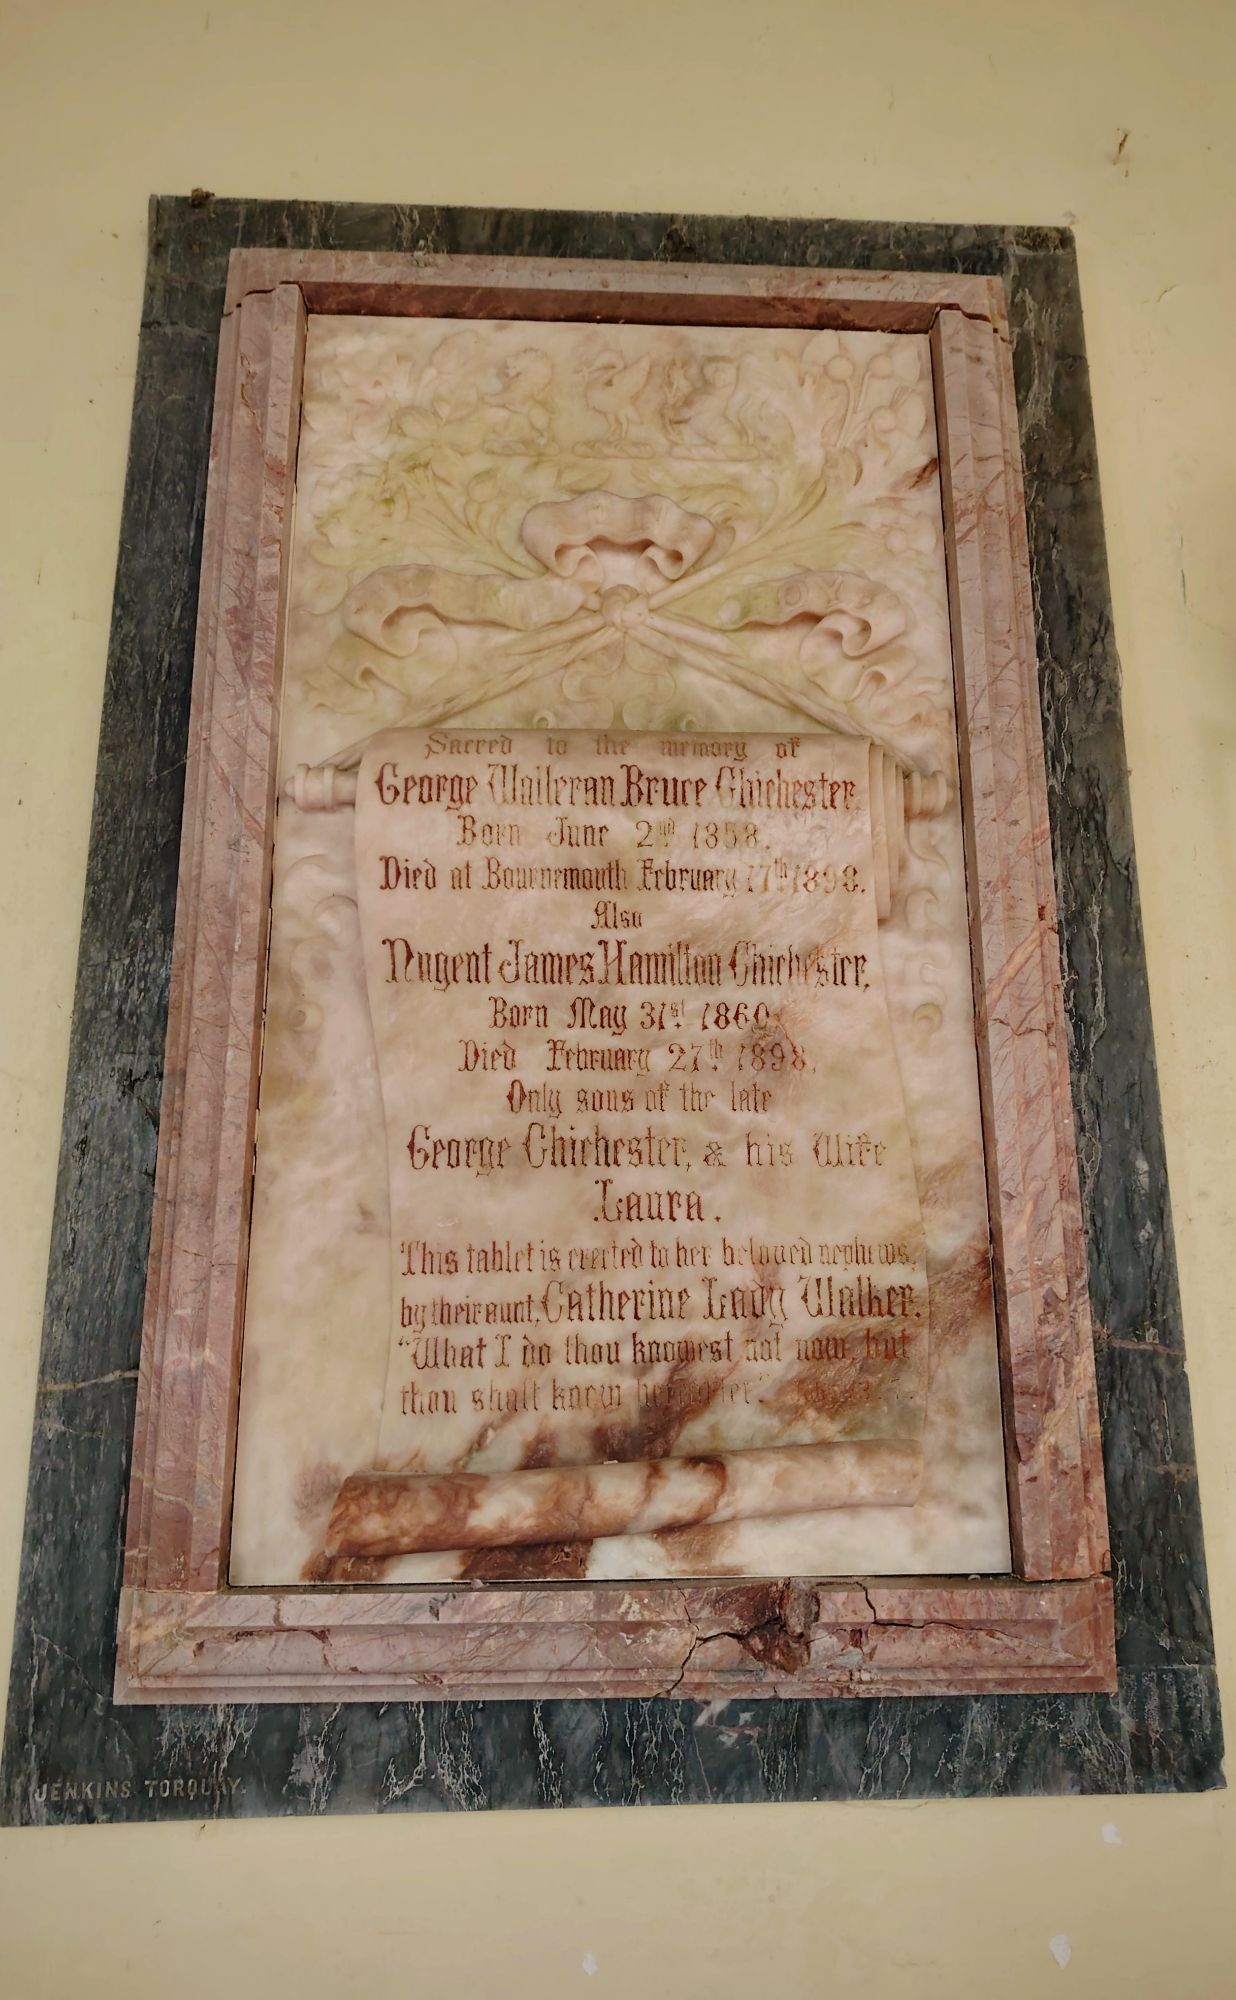 Sacred to the memory of
George Walleran Bruce Chichester,
Born June 2nd 1858.
Died at Bournemouth February 17th 1898.
Also
Nugent James Hamilton Chichester,
Born May 31st 1860.
Died February 27th 1898,
Only sons of the late
George Chichester, & his Wife
Laura.
This tablet is erected to her beloved nephews,
by their aunt, Catherine Lady Walker.
"What I do thou knowest not now, but
thou shalt know hereafter."
JENKINS TORQUAY.